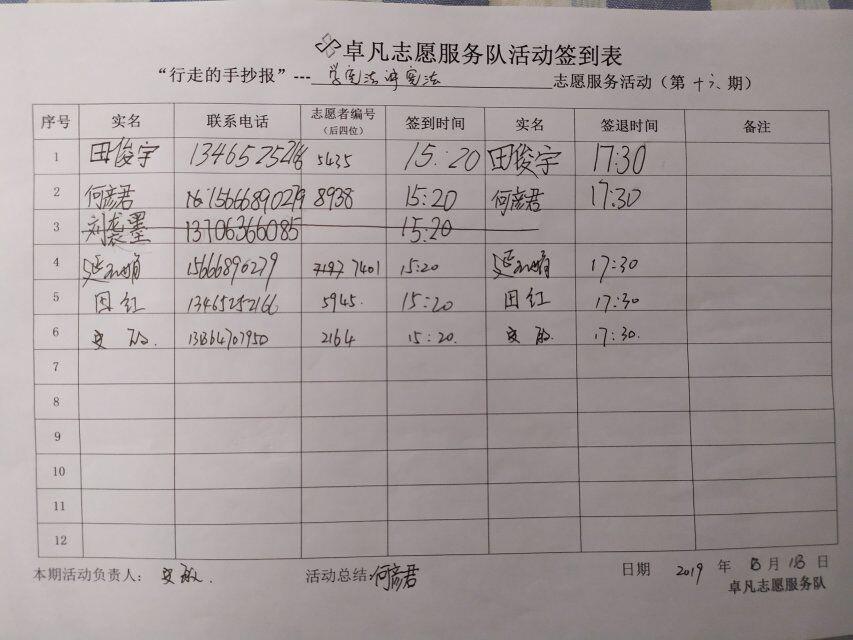 卓凡志愿服务队活动签到表
“行走的手抄报”---学宪法讲宪法 志愿服务活动（第 十六 期）
序号 实名 联系电话 志愿者编号（后四位） 签到时间 实名 签退时间 备注
1 田俊宇 13465252166 5435 15:20 田俊宇 17:30
2 何彦君 15666890279 8938 15:20 何彦君 17:30
3 刘袭墨 13706366085 15:20
4 15666890279 7401 15:20 17:30
5 田红 13465252166 5945. 15:20 田红 17:30
6 13864707950 2164 15:20. 17:30.
7
8
9
10
11
12
本期活动负责人： 活动总结:何彦君 日期 2019 年 月 日
卓凡志愿服务队